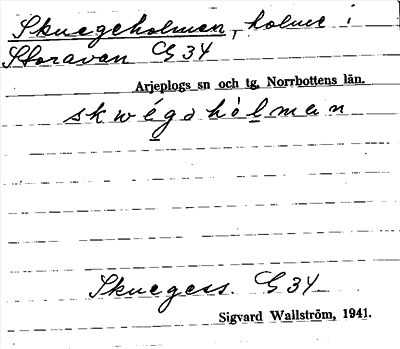 Skuegeholmen, holme i
Storavan G 34
Arjeplogs sn och tg, Norrbottens län.
skwégahòlman
Skuegess. G 34
Sigvard Wallström, 1941.